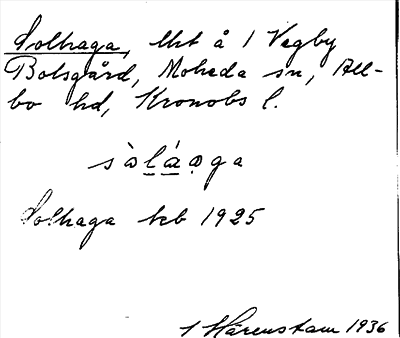 Solhaga, lht å 1 Vegby
Botsgård, Moheda sn, All-
bo hd, Kronobs l.
sòláǫga
Solhaga kb 1925
1 Härenstam 1936